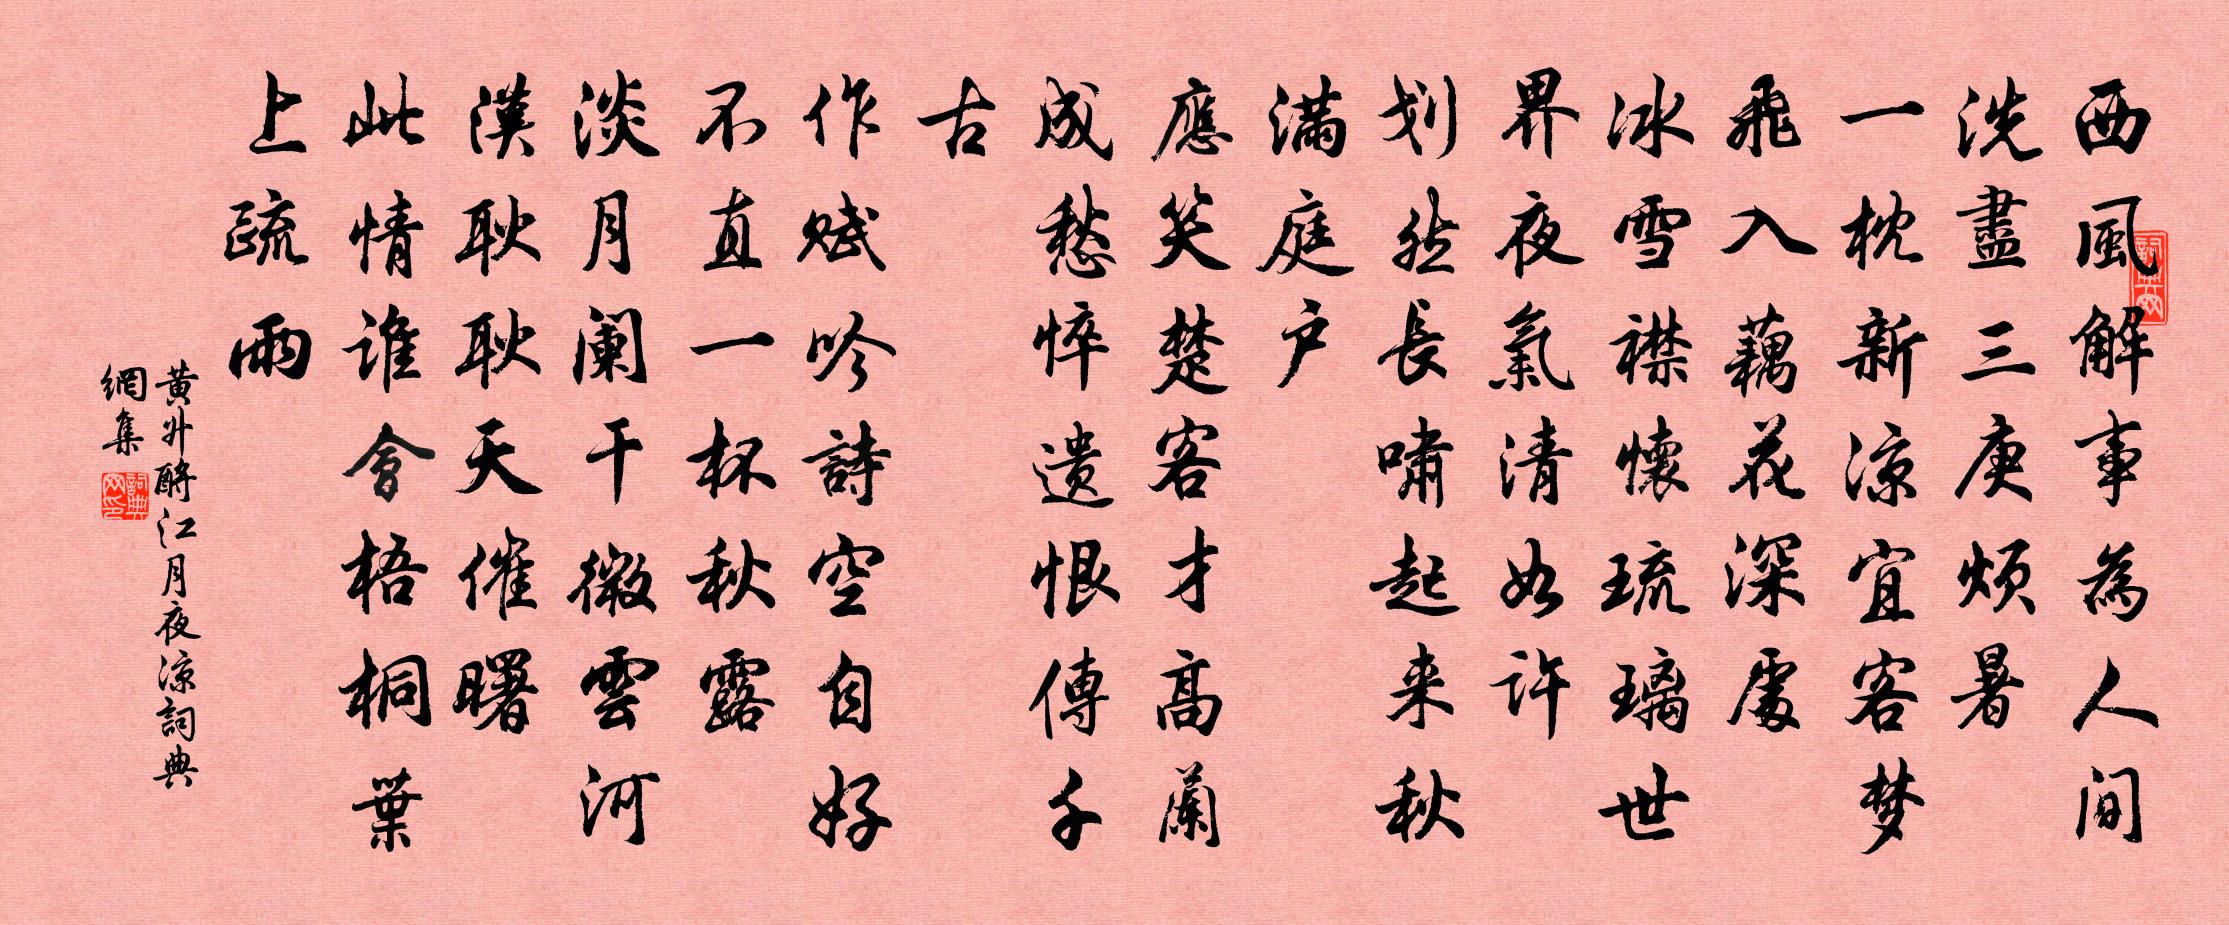 西風解事為人間
洗盡三庚烦暑
一枕新凉宜客梦
飛入藕花深處
冰雪襟懷琉璃世
界夜氣清如许
划然长啸起来秋
满庭户
應笑楚客才高蘭
成愁悴遗恨傳千
古
作赋吟詩空自好
不直一杯秋露
淡月阑干微雲河
漢耿耿天催曙
此情谁會梧桐葉
上疏雨
黄升酹江月夜凉詞典
網集
詞典網
詞典網印